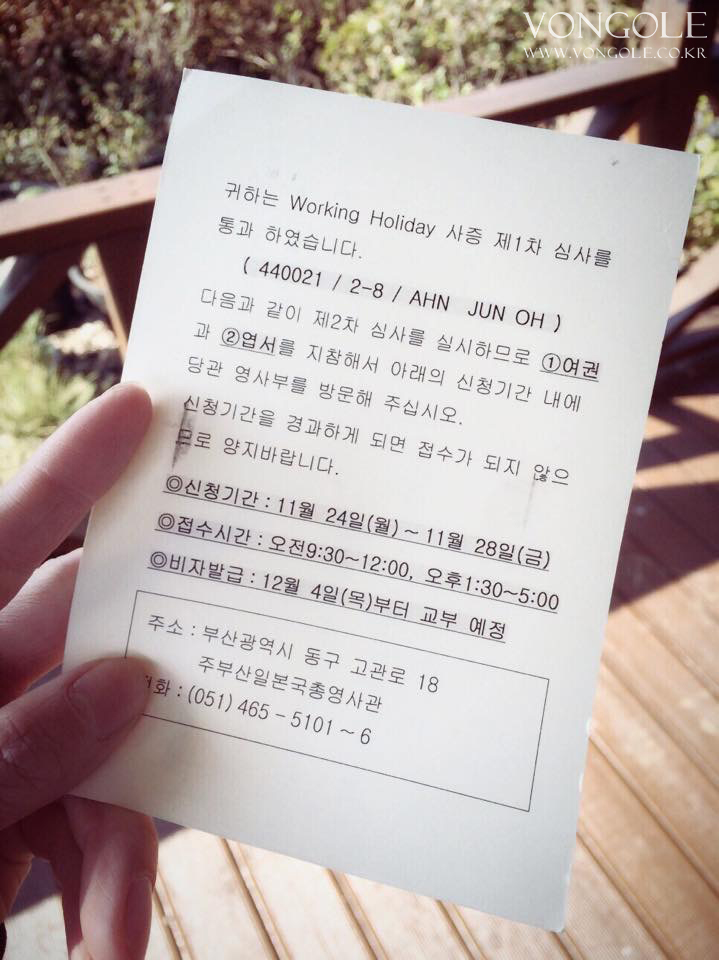 VONGOLE
WWW.VONGOLE.CO.KR
귀하는 Working Holiday 사증 제1차 심사를
통과 하였습니다.
( 440021 / 2-8 / AHN JUN OH )
다음과 같이 제2차 심사를 실시하므로 ①여권
과 ②엽서를 지참해서 아래의 신청기간 내에
당관 영사부를 방문해 주십시오.
신청기간을 경과하게 되면 접수가 되지 않으
므로 양지바랍니다.
◎신청기간 : 11월 24일(월) ~ 11월 28일(금)
◎접수시간 : 오전9:30~12:00, 오후1:30~5:00
◎비자발급 : 12월 4일(목)부터 교부 예정
주소 : 부산광역시 동구 고관로 18
주부산일본국총영사관
화 : (051) 465 - 5101 ~ 6